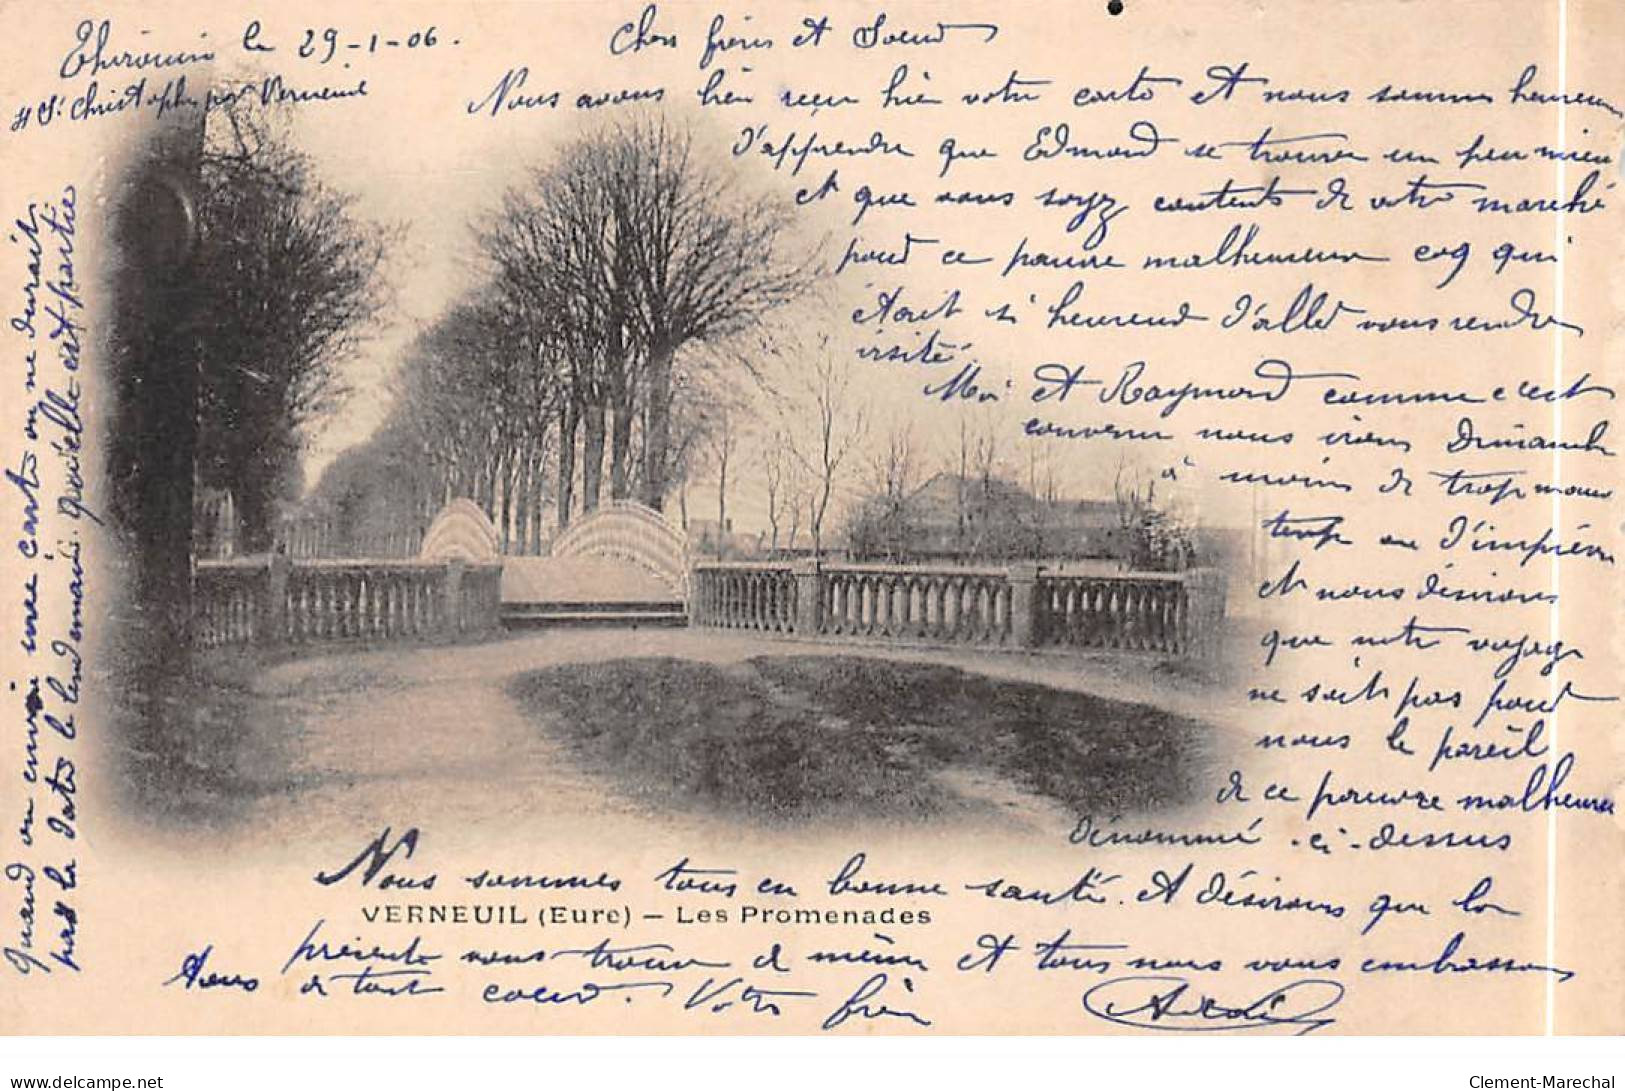 le 29-1-06.
St Christophe par Verneuil
Chers frères et Soeurs
Nous avons bien reçu hier votre carte et nous sommes heureux
d'apprendre que Edmond se trouve un peu mieux
et que vous soyez contents de votre marché
pour ce pauvre malheureux coq qui
était si heureux d'aller vous rendre
visite
Moi et Raymond comme c'est
convenu nous irons Dimanche
à moins de trop mauvais
temps ou d'imprévu
et nous désirons
que notre voyage
ne soit pas pour
nous le pareil
de ce pauvre malheureux
dénommé ci-dessus
Nous sommes tous en bonne santé. Et désirons que la
VERNEUIL (Eure) — Les Promenades
présente vous trouve de même et tous nous vous embrassons
tous de tout coeur. Votre frère
Quand on envoie une carte on ne devrait
pas la dater le lendemain qu'elle est partie
www.delcampe.net
Clement-Marechal